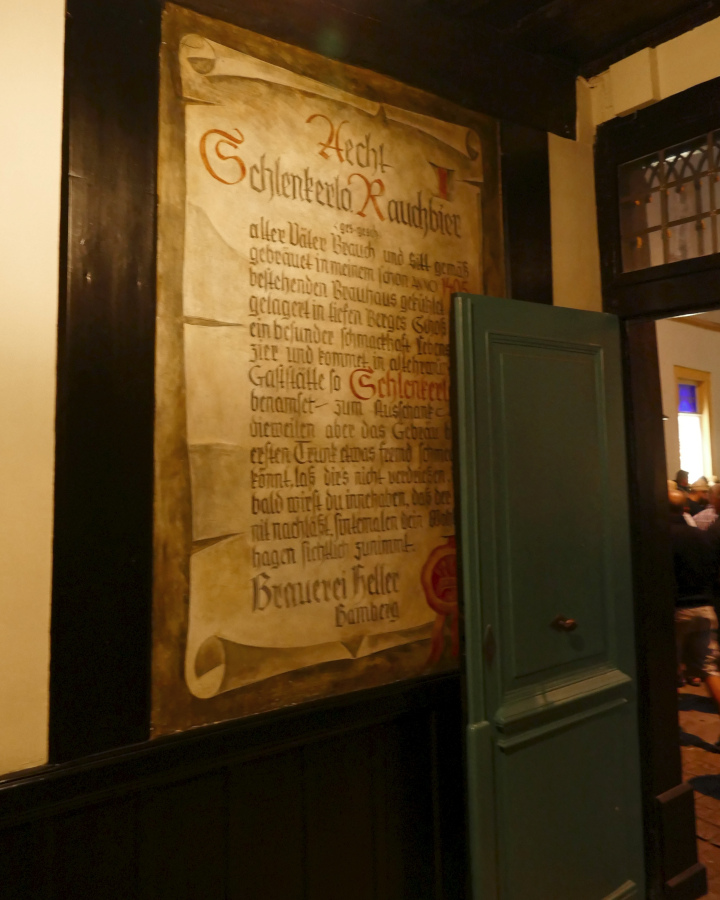 Aecht
Schlenkerla Rauchbier
ges. gesch.
alter Väter Brauch und Sitt gemäß
gebräuet in meinem schon ANNO 1405
bestehenden Brauhaus gekühlet
gelagert in tiefen Berges Schoß
ein besunder schmackhaft Lebens
zier und kommet in altehrwür
Gaststätte so Schlenkerl
benamset – zum Ausschank –
dieweilen aber das Gebräu
ersten Trunk etwas fremd schme
könnt, laß dir's nicht verdrießen
bald wirst du innehaben, daß der
nit nachläßt, sintemalen dein Wohl
hagen sichtlich zunimmt.
Brauerei Heller
Bamberg